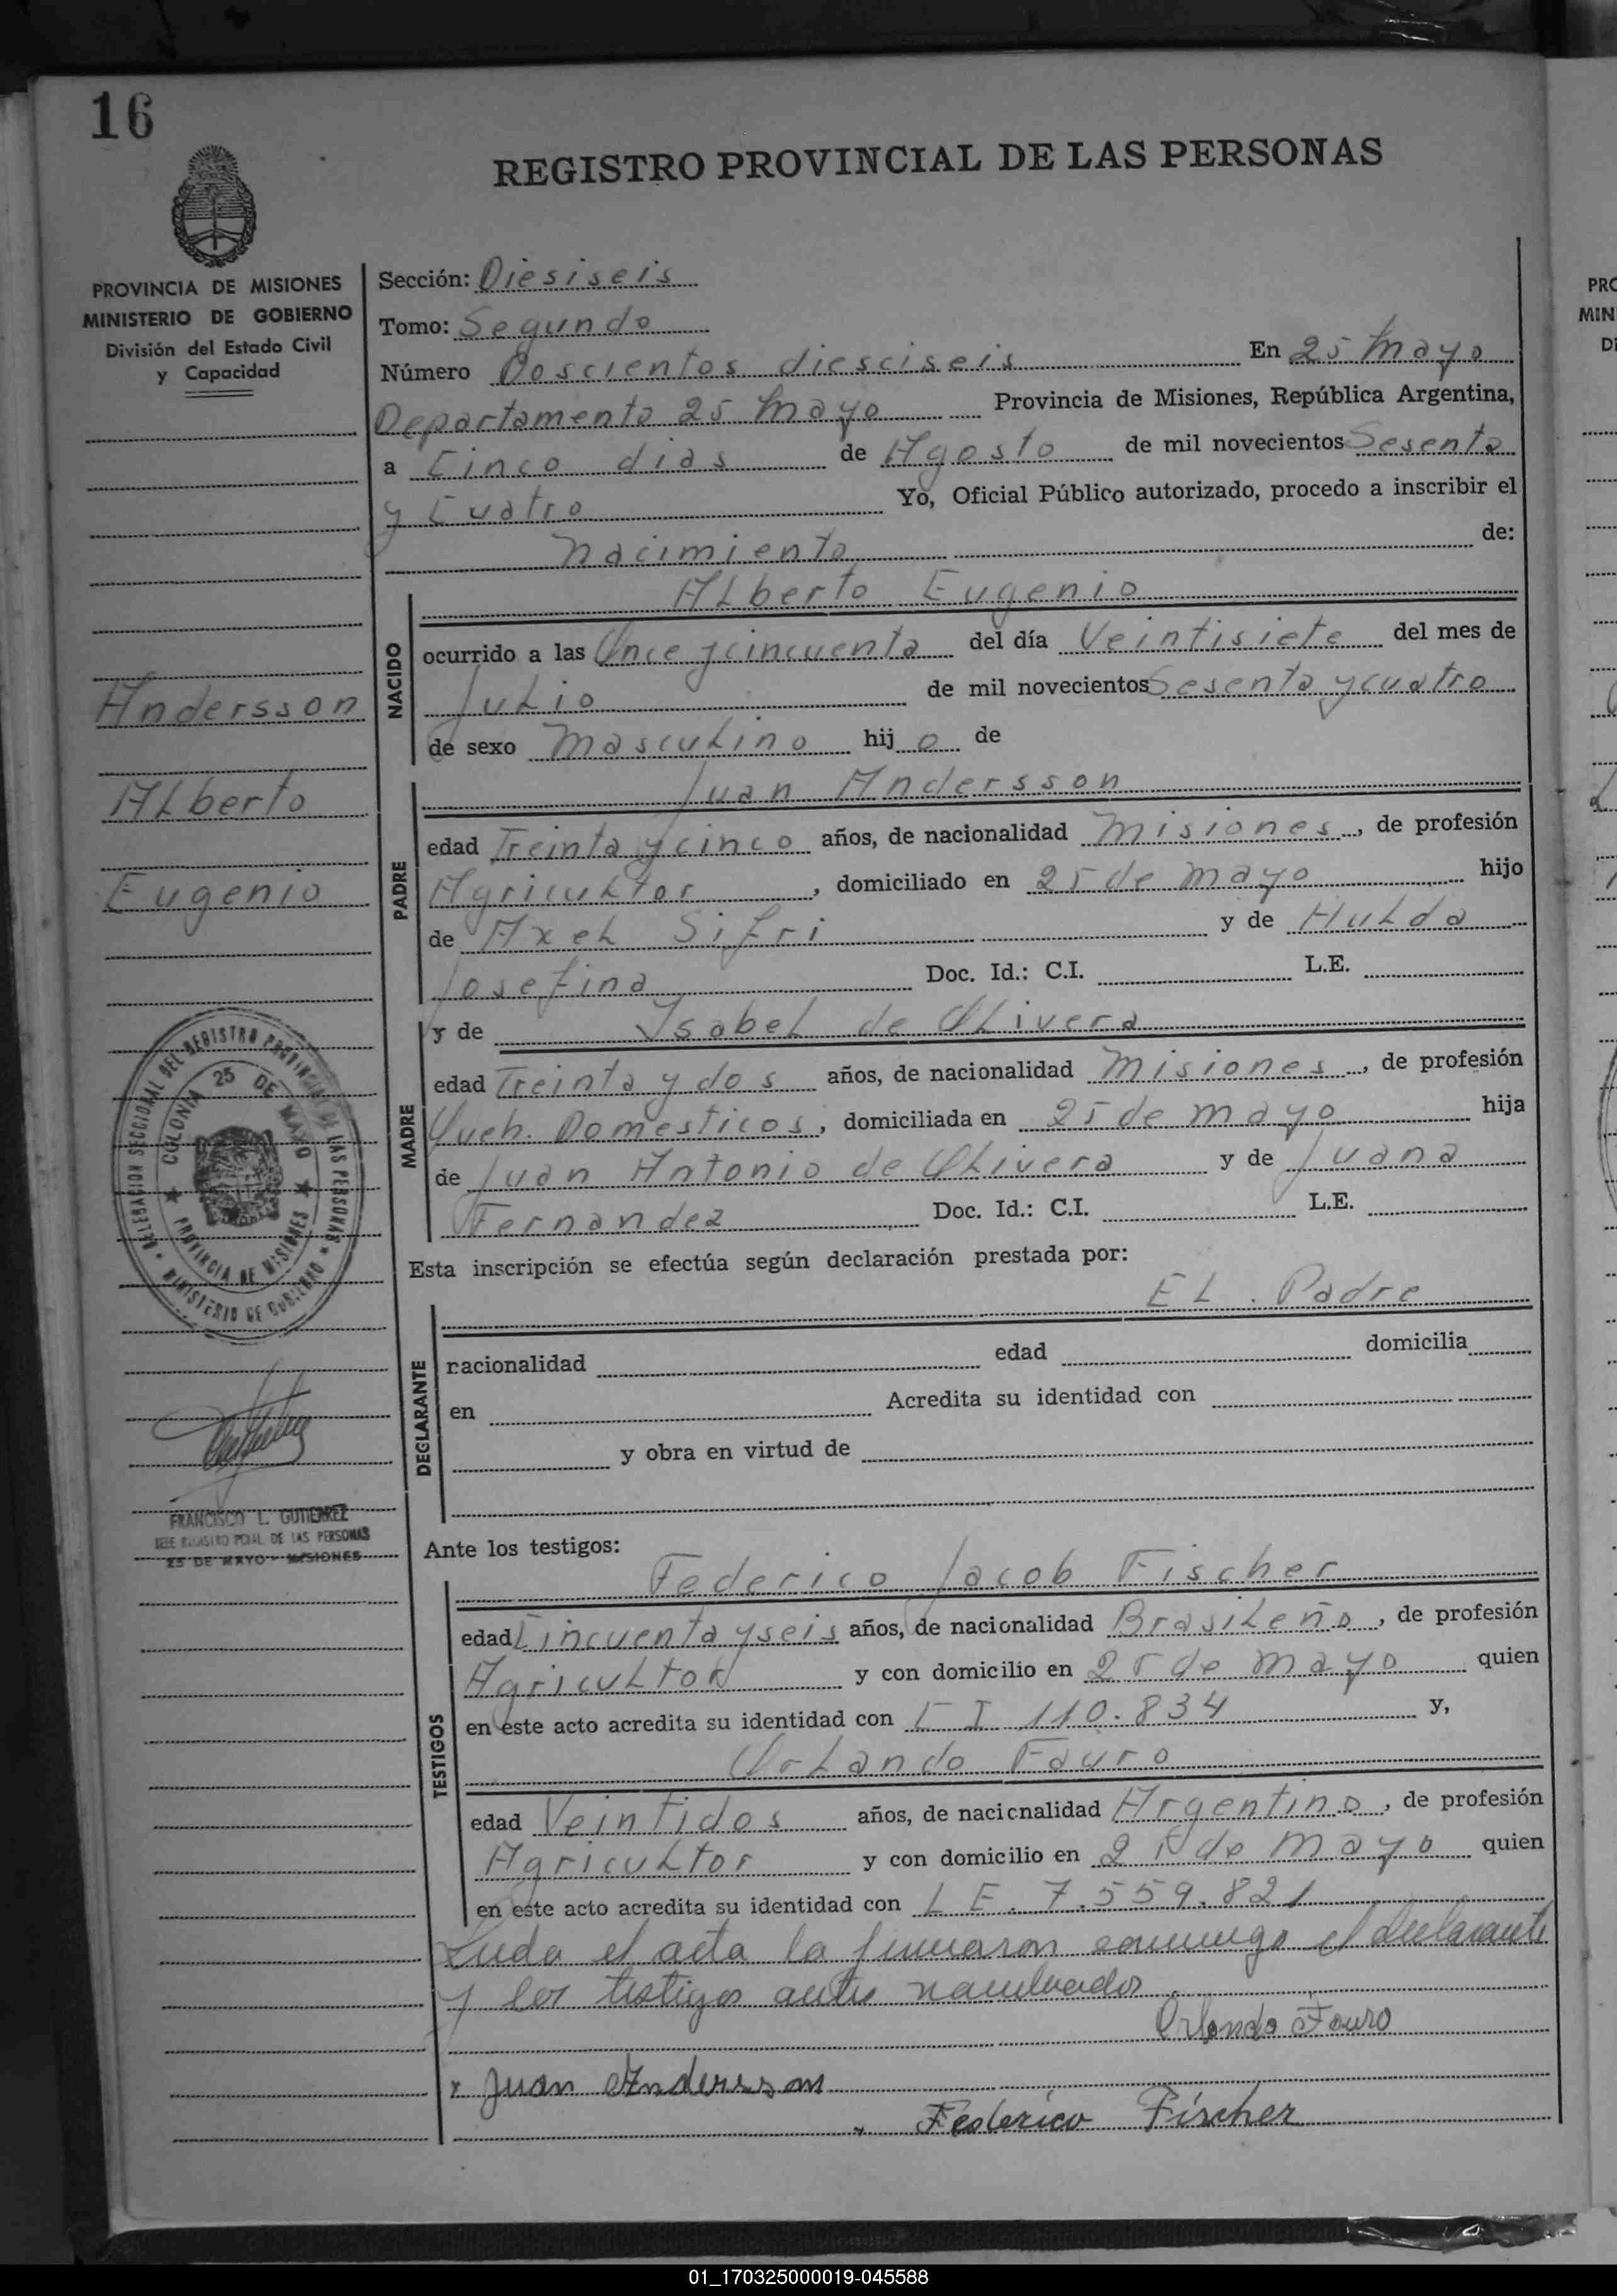 16
REGISTRO PROVINCIAL DE LAS PERSONAS
PROVINCIA DE MISIONES
MINISTERIO DE GOBIERNO
División del Estado Civil
y Capacidad
Sección: Diesiseis
Tomo: Segundo
Número Doscientos diesciseis En 25 Mayo
Departamento 25 Mayo Provincia de Misiones, República Argentina,
a Cinco dias de Agosto de mil novecientos Sesenta
y Cuatro Yo, Oficial Público autorizado, procedo a inscribir el
nacimiento de:
Andersson
Alberto
Eugenio
NACIDO
Alberto Eugenio
ocurrido a las Once y cincuenta del día Veintisiete del mes de
Julio de mil novecientos Sesenta y cuatro
de sexo Masculino hij o de
PADRE
Juan Andersson
edad Treinta y cinco años, de nacionalidad Misiones, de profesión
Agricultor, domiciliado en 25 de Mayo hijo
de Axel Sifri y de Hulda
Josefina Doc. Id.: C.I. L.E.
MADRE
y de Ysabel de Olivera
edad Treinta y dos años, de nacionalidad Misiones, de profesión
Queh. Domesticos, domiciliada en 25 de mayo hija
de Juan Antonio de Olivera y de Juana
Fernandez Doc. Id.: C.I. L.E.
DELEGACION SECCIONAL DEL REGISTRO PROVINCIAL DE LAS PERSONAS
MINISTERIO DE GOBIERNO
COLONIA 25 DE MAYO
PROVINCIA DE MISIONES
Esta inscripción se efectúa según declaración prestada por:
DECLARANTE
El. Padre
nacionalidad edad domicilia
en Acredita su identidad con
y obra en virtud de
FRANCISCO L. GUTIERREZ
JEFE REGISTRO PCIAL DE LAS PERSONAS
25 DE MAYO - MISIONES
Ante los testigos:
TESTIGOS
Federico Jacob Fischer
edad Cincuenta y seis años, de nacionalidad Brasileño, de profesión
Agricultor y con domicilio en 25 de mayo quien
en este acto acredita su identidad con C I 110.834 y,
Orlando Fauro
edad Veintidos años, de nacionalidad Argentino, de profesión
Agricultor y con domicilio en 25 de Mayo quien
en este acto acredita su identidad con L E. 7.559.821
Leida el acta la firmaron conmigo el declarante
y los testigos antes nombrados
Orlando Fauro
Juan Andersson
Federico Fischer
PRO
MIN
Di
01_170325000019-045588